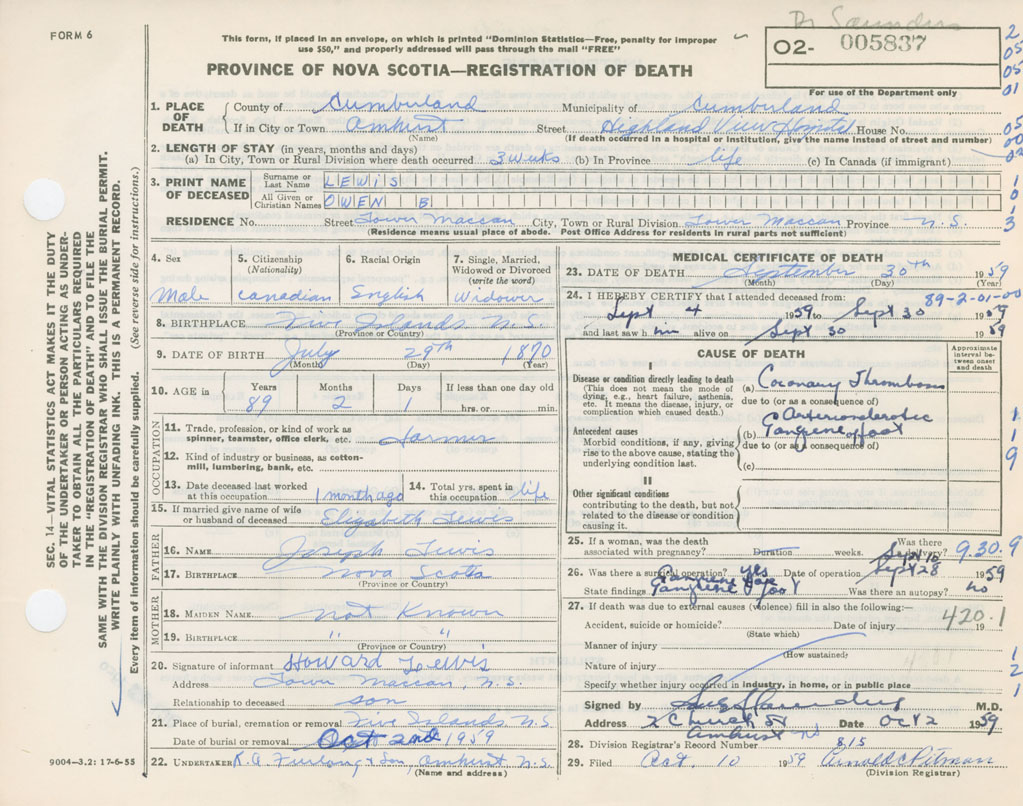 Dr Saunders
FORM 6
This form, if placed in an envelope, on which is printed "Dominion Statistics—Free, penalty for improper
use $50," and properly addressed will pass through the mail "FREE"
02- 005837
For use of the Department only
PROVINCE OF NOVA SCOTIA—REGISTRATION OF DEATH
2
05
05
01
05
00
02
1
0
1
3
SEC. 14—VITAL STATISTICS ACT MAKES IT THE DUTY
OF THE UNDERTAKER OR PERSON ACTING AS UNDER-
TAKER TO OBTAIN ALL THE PARTICULARS REQUIRED
IN THE "REGISTRATION OF DEATH" AND TO FILE THE
SAME WITH THE DIVISION REGISTRAR WHO SHALL ISSUE THE BURIAL PERMIT.
WRITE PLAINLY WITH UNFADING INK. THIS IS A PERMANENT RECORD.
Every item of information should be carefully supplied. (See reverse side for instructions.)
1. PLACE OF DEATH { County of Cumberland Municipality of Cumberland
If in City or Town Amherst Street Highland View Hospital House No.
(Name) (If death occurred in a hospital or institution, give the name instead of street and number)
2. LENGTH OF STAY (in years, months and days)
(a) In City, Town or Rural Division where death occurred 3 wks (b) In Province life (c) In Canada (if immigrant)
3. PRINT NAME OF DECEASED { Surname or Last Name LEWIS
All Given or Christian Names OWEN B
RESIDENCE No. Street Lower Maccan City, Town or Rural Division Lower Maccan Province N.S.
(Residence means usual place of abode. Post Office Address for residents in rural parts not sufficient)
4. Sex 5. Citizenship (Nationality) 6. Racial Origin 7. Single, Married, Widowed or Divorced (write the word)
Male Canadian English Widower
8. BIRTHPLACE Five Islands N.S.
(Province or Country)
9. DATE OF BIRTH July 29th 1870
(Month) (Day) (Year)
10. AGE in { Years Months Days If less than one day old
89 2 1 hrs. or min.
OCCUPATION
11. Trade, profession, or kind of work as
spinner, teamster, office clerk, etc. Farmer
12. Kind of industry or business, as cotton-
mill, lumbering, bank, etc.
13. Date deceased last worked at this occupation 1 month ago 14. Total yrs. spent in this occupation life
15. If married give name of wife
or husband of deceased Elizabeth Lewis
FATHER
16. NAME Joseph Lewis
17. BIRTHPLACE Nova Scotia
(Province or Country)
MOTHER
18. MAIDEN NAME not Known
19. BIRTHPLACE " "
(Province or Country)
20. Signature of informant Howard Lewis
Address Lower Maccan, N.S.
Relationship to deceased son
21. Place of burial, cremation or removal Five Islands N.S.
Date of burial or removal Oct 2nd 1959
22. UNDERTAKER R.A. Furlong & Son, Amherst N.S.
(Name and address)
9004—3.2: 17-6-55
MEDICAL CERTIFICATE OF DEATH
23. DATE OF DEATH September 30th 1959
(Month) (Day) (Year)
24. I HEREBY CERTIFY that I attended deceased from: 89-2-01-00
Sept 4 1959 to Sept 30 1959
and last saw h im alive on Sept 30 1959
CAUSE OF DEATH
Approximate interval be-
tween onset and death
I
Disease or condition directly leading to death
(This does not mean the mode of
dying, e.g., heart failure, asthenia,
etc. It means the disease, injury, or
complication which caused death.)
(a) Coronary Thrombosis
due to (or as a consequence of)
Antecedent causes
Morbid conditions, if any, giving
rise to the above cause, stating the
underlying condition last.
Arteriosclerotic
(b) Gangrene of foot
due to (or as a consequence of)
(c)
1
1
9
II
Other significant conditions
contributing to the death, but not
related to the disease or condition
causing it.
25. If a woman, was the death Was there
associated with pregnancy? Duration weeks. a delivery? 9.30.9
Sept 10
26. Was there a surgical operation? yes Date of operation Sept 28 1959
State findings Gangrene foot Was there an autopsy? no
27. If death was due to external causes (violence) fill in also the following:—
Accident, suicide or homicide? Date of injury 19
(State which)
420.1
Manner of injury
(How sustained)
Nature of injury
Specify whether injury occurred in industry, in home, or in public place
1
2
1
Signed by M.D.
Address 2 Church St Date Oct 2 1959
Amherst NS
28. Division Registrar's Record Number 815
29. Filed Oct. 10 1959 Arnold C Pitman
(Division Registrar)